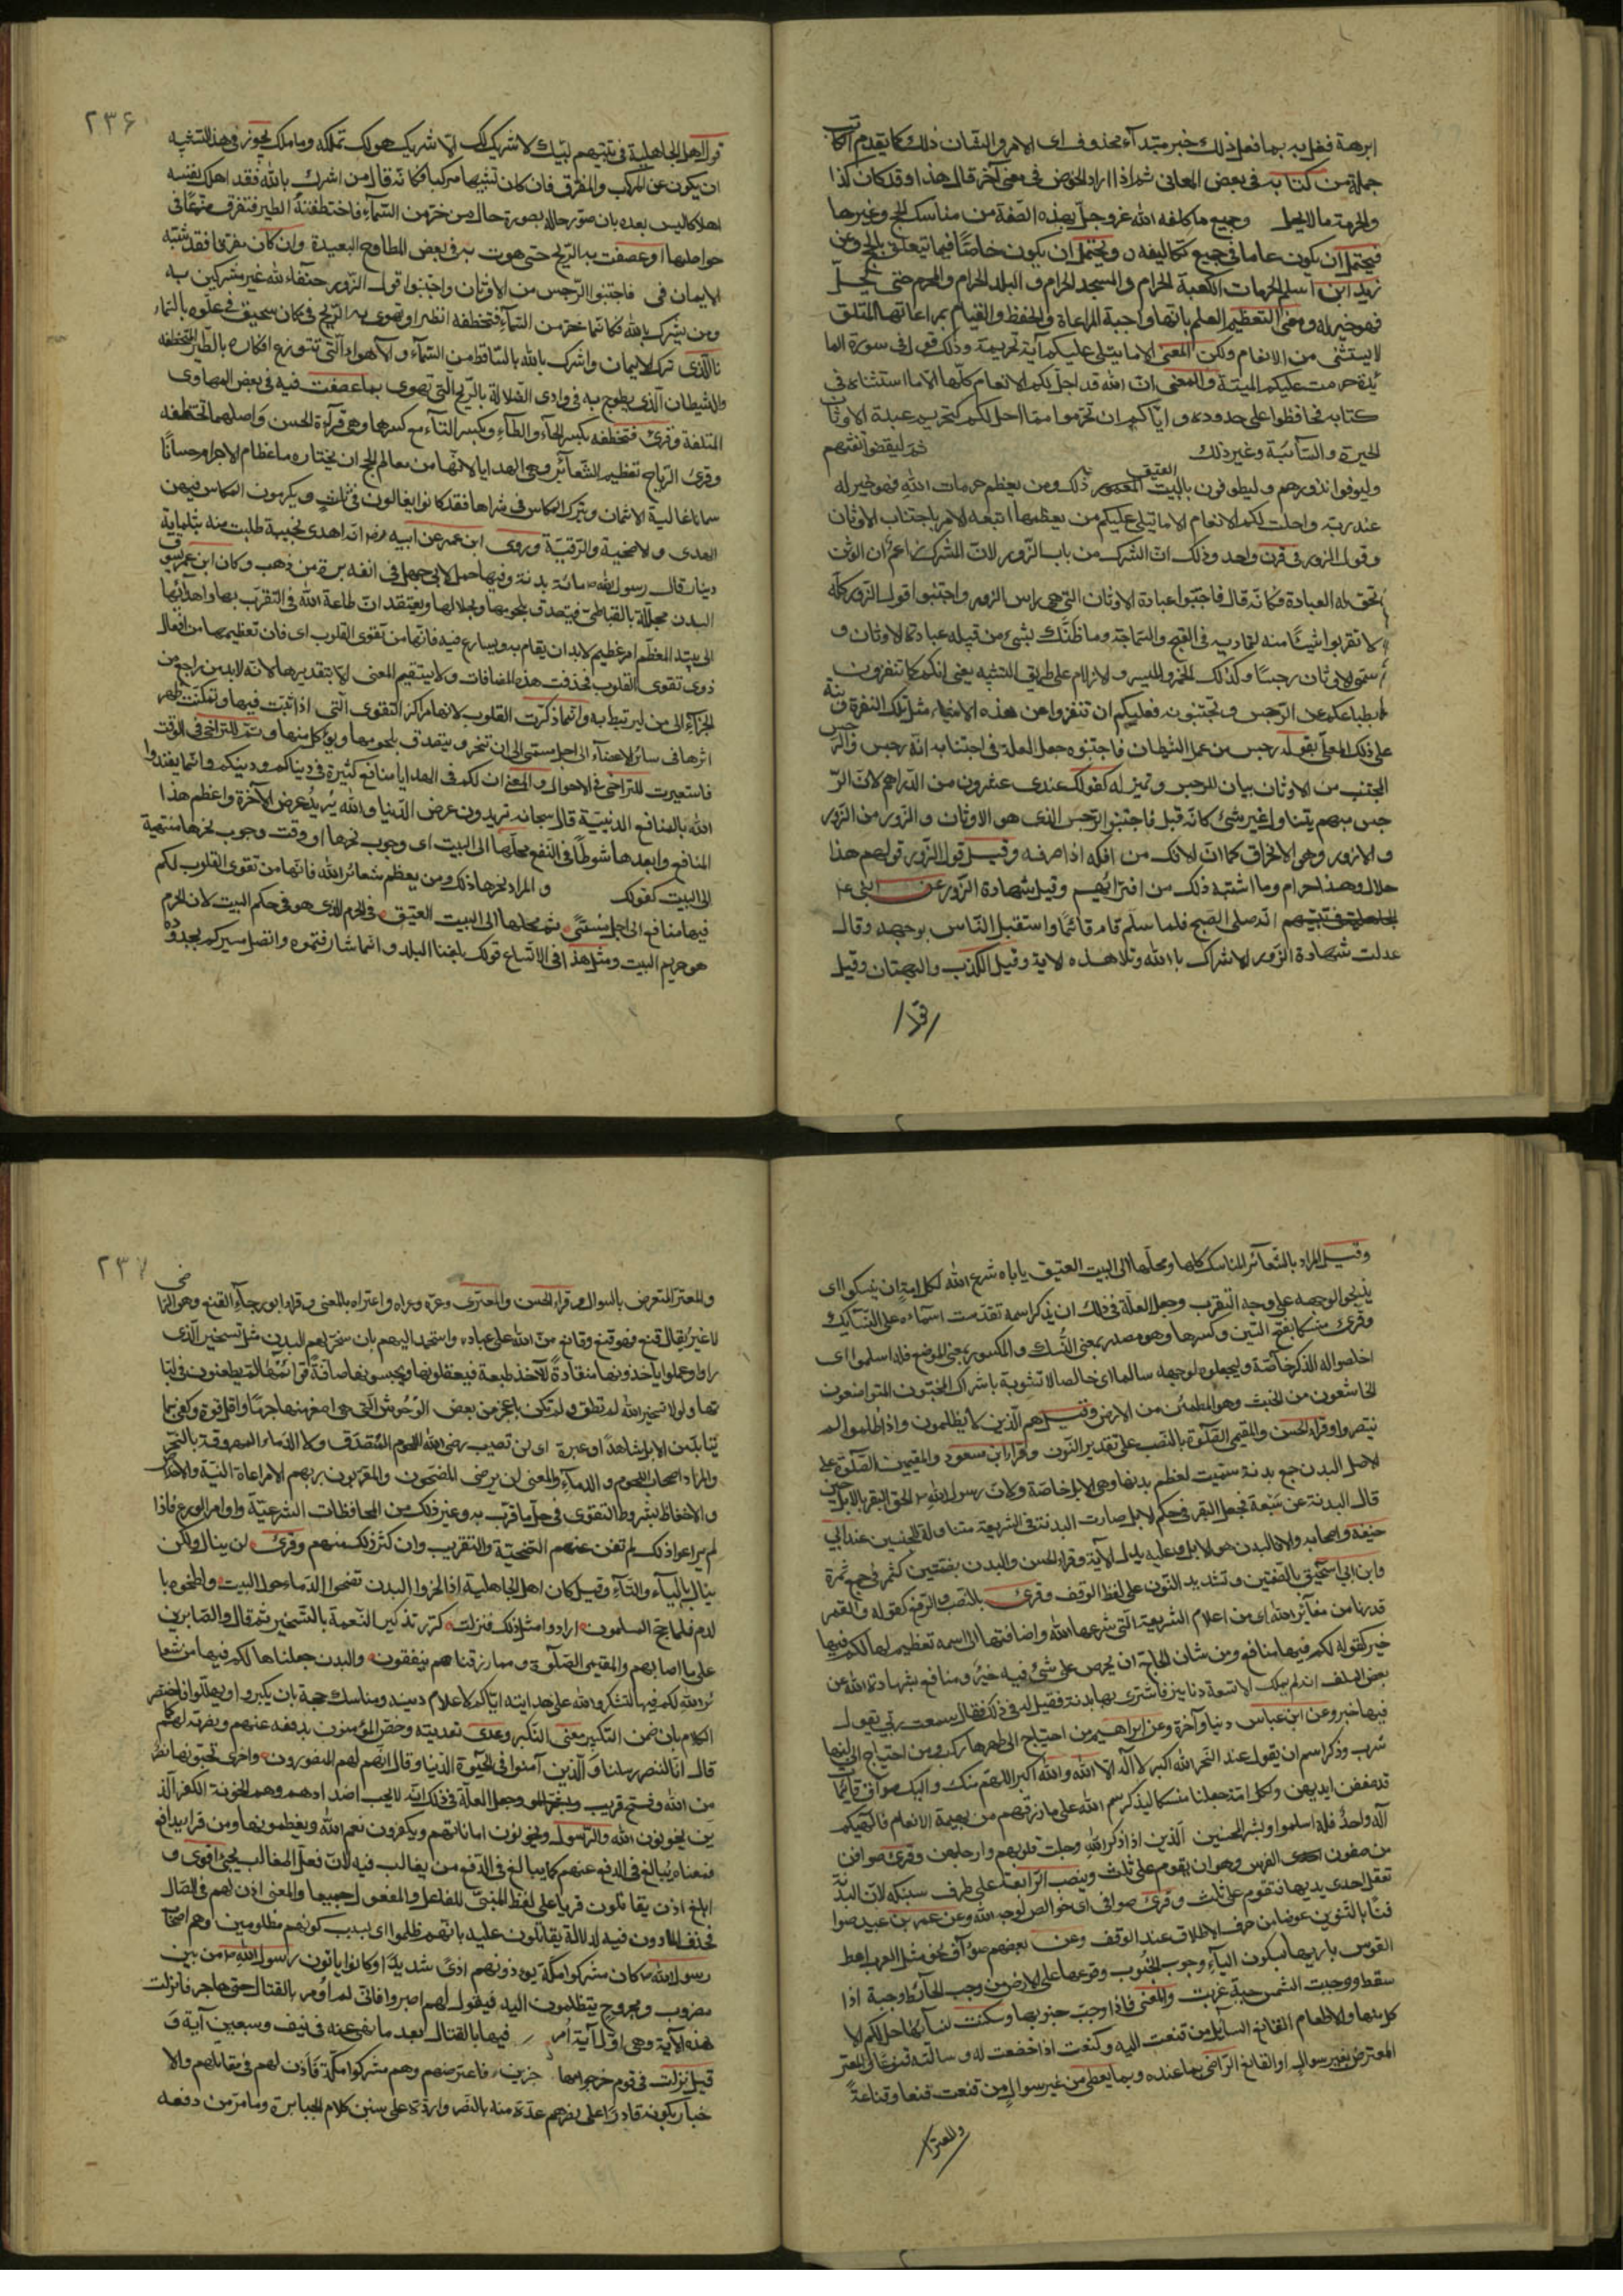 ابرهة ففعل به بما فعل ذلك خبر مبتدأ محذوف اى الامر والشان ذلك كما يقدم الكاتب
جملة من كتابه فى بعض المعانى ثم اذا اراد الخوض فى معنى آخر قال هذا وقد كان كذا
والحرمة ما لا يحل وجميع ما كلفه الله عز وجل بهذه الصفة من مناسك الحج وغيرها
فيحتمل ان يكون عاما فى جميع تكاليفه ويحتمل ان يكون خاصا فيما يتعلق بالحج وعن
زيد ابن اسلم الحرمات الكعبة الحرام والمسجد الحرام والبلد الحرام والمحرم حتى يحل
فهو خير له ومعنى التعظيم العلم بانها واجبة المراعاة والحفظ والقيام بمراعاتها المتلو
لا يستثنى من الانعام ولكن المعنى الا ما يتلى عليكم آية تحريمه وذلك قوله فى سورة الما
ئدة حرمت عليكم الميتة والمعنى ان الله قد احل لكم الانعام كلها الا ما استثناه فى
كتابه فحافظوا على حدوده واياكم ان تحرموا مما احل لكم كتحريم عبدة الاوثان
البحيرة والسائبة وغير ذلك ثم ليقضوا تفثهم
وليوفوا نذورهم وليطوفون بالبيت العتيق ذلك ومن يعظم حرمات الله فهو خير له
عند ربه واحلت لكم الانعام الا ما يتلى عليكم من يعظمها اتبعه الامر باجتناب الاوثان
وقول الزور فى قرن واحد وذلك ان الشرك من باب الزور لان المشرك زاعم ان الوثن
تحق له العبادة فكانه قال فاجتنبوا عبادة الاوثان التى هى راس الزور واجتنبوا قول الزور كله
لا تقربوا شيئا منه لتماديه فى القبح والسماجة وما ظنك بشئ من قبيله عبادة الاوثان و
سمى الاوثان رجسا وكذلك الخمر والميسر والازلام على طريق التشبيه يعنى انكم كما تنفرون
بطباعكم عن الرجس وتجتنبونه فعليكم ان تنفروا عن هذه الاشياء مثل تلك النفرة ونبه
على ذلك المعنى بقوله رجس من عمل الشيطان فاجتنبوه جعل العلة فى اجتنابه انه رجس والرجس
المجتنب من الاوثان بيان للرجس وتميز له كقولك عندى عشرون من الدراهم لان الر
جس مبهم يتناول غير شئ كانه قيل فاجتنبوا الرجس الذى هو الاوثان والزور من الزور
والازورار وهو الانحراف كما ان الافك من افكه اذا صرفه وقيل قول الزور قولهم هذا
حلال وهذا حرام وما اشتبه ذلك من افترائهم وقيل شهادة الزور عن النبى
انه صلى الصبح فلما سلم قام قائما واستقبل الناس بوجهه وقال
عدلت شهادة الزور الاشراك بالله وتلا هذه الاية وقيل الكذب والبهتان وقيل
قول
٢٣۶
قول اهل الجاهلية فى تلبيتهم لبيك لا شريك لك الا شريك هو لك تملكه وما ملك يجوز فى هذا التشبيه
ان يكون عن المركب والمفرق فان كان تشبيها مركبا فكانه قال من اشرك بالله فقد اهلك نفسه
اهلاكا ليس بعده بان صور حاله بصورة حال من خر من السماء فاختطفته الطير فتفرق مزعا فى
حواصلها او عصفت به الريح حتى هوت به فى بعض المطاوح البعيدة وان كان مفرقا فقد شبه
الايمان فى فاجتنبوا الرجس من الاوثان واجتنبوا قول الزور حنفاء لله غير مشركين به
ومن يشرك بالله فكانما خر من السماء فتخطفه الطير او تهوى به الريح فى مكان سحيق فى علوه بالسماء
والذى ترك الايمان واشرك بالله بالساقط من السماء والاهواء التى تتوزع افكاره بالطير المختطفه
والشيطان الذى يطوح به فى وادى الضلالة بالريح التى تهوى بما عصفت فيه فى بعض المهاوى
المتلفة وقرئ فتخطفه بكسر الخاء والطاء وبكسر التاء مع كسرها وهى قرآءة الحسن واصلهما تختطفه
وقرئ الرياح تعظيم الشعائر وهى الهدايا لانها من معالم الحج ان يختارها عظام الاجرام حسانا
سمانا غالية الاثمان ويترك المكاس فى شراها فقد كانوا يغالون فى ثلث ويكرهون المكاس فيهن
الهدى والاضحية والرقبة وروى ابن عمر عن ابيه انه اهدى نجيبة طلبت منه بثلثماية
دينار قال رسول الله مائة بدنة وفيها جمل لابى جهل فى انفه برة من ذهب وكان ابن عمر يسوق
البدن مجللة بالقباطى فيتصدق بلحومها وبجلالها ويعتقد ان طاعة الله فى التقرب بها واهدائها
الى بيته المعظم امر عظيم لا بد ان يقام به ويسارع فيه فانها من تقوى القلوب اى فان تعظيمها من افعال
ذوى تقوى القلوب فحذفت هذه المضافات ولا يستقيم المعنى الا بتقديرها لانه لابد من راجع من
الجزاء الى من ليرتبط به وانما ذكرت القلوب لانها مراكز التقوى التى اذا ثبت فيها وتمكنت ظهر
اثرها فى سائر الاعضاء الى اجل مسمى الى ان تنحر ويتصدق بلحومها ويؤكل منها وثم للتراخى فى الوقت
فاستعيرت للتراخى فى الاحوال والمعنى ان لكم فى الهدايا منافع كثيرة فى دنياكم ودينكم وانما يعتدوا
الله بالمنافع الدنيية قال سبحانه تريدون عرض الدنيا والله يريد عرض الآخرة واعظم هذا
المنافع وابعدها شوطا فى النفع محلها الى البيت اى وجوب نحرها او وقت وجوب نحرها منتهية
الى البيت كقولك والمراد نحرها ذلك ومن يعظم شعائر الله فانها من تقوى القلوب لكم
فيها منافع الى اجل مسمى ثم محلها الى البيت العتيق فى الحرم الذى هو فى حكم البيت لان الحرم
هو حريم البيت ومثل هذا فى الاتساع قولك بلغنا البلد وانما شارفتموه واتصل سيركم بحدوده
وقيل المراد بالشعائر المناسك كلها ومحلها الى البيت العتيق ياباه شرع الله لكل امة ان ينسكوا اى
يذبحوا لوجهه على وجه التقرب وجعل العلة فى ذلك ان يذكر اسمه تقدست اسماءه على النسائك
وقرئ منسكا بفتح السين وكسرها وهو مصدر بمعنى النسك والمكسور بمعنى الموضع فله اسلموا اى
اخلصوا له الذكر خاصة وليجعلوه لوجهه سالما اى خالصا لا تشوبه باشراك المخبتون المتواضعون
الخاشعون من الخبت وهو المطمئن من الارض وقيل هم الذين لا يظلمون واذا ظلموا لم
ينتصروا وقراء الحسن والمقيمى الصلوة بالنصب على تقدير النون وقرا ابن مسعود والمقيمين الصلوة على
الاصل البدن جمع بدنة سميت لعظم بدنها وهى الابل خاصة ولان رسول الله الحق البقر بالابل حين
قال البدنة عن سبعة فجعل البقر فى حكم الابل صارت البدنة فى الشريعة متناولة للجنسين عند ابى
حنيفة واصحابه والا فالبدن هى الابل وعليه يدل الآية وقراء الحسن والبدن بضمتين كثمر فى جمع ثمرة
وابن ابى اسحق بالضمتين وتشديد النون على لفظ الوقف وقرئ بالنصب والرفع كقوله والقمر
قدرناه من شعائر الله اى من اعلام الشريعة التى شرعها الله واضافتها الى اسمه تعظيم لها لكم فيها
خير كقوله لكم فيها منافع ومن شان الحاج ان يحرص على شئ فيه خير ومنافع بشهادة الله عن
بعض السلف انه لم يملك الا تسعة دنانير فاشترى بها بدنة فقيل له فى ذلك فقال سمعت ربى يقول
فيها خير وعن ابن عباس دنيا وآخرة وعن ابراهيم من احتاج الى ظهرها ركب ومن احتاج الى لبنها
شرب وذكر اسم ان يقول عند النحر الله اكبر لا اله الا الله والله اكبر اللهم منك واليك صواف قائما
قد صففن ايديهن ولكل امة جعلنا منسكا ليذكر اسم الله على ما رزقهم من بهيمة الانعام فالهكم
اله واحد فله اسلموا وبشر المخبتين الذين اذا ذكر الله وجلت قلوبهم وارجلهن وقرئ صوافن
من صفون الفرس وهو ان يقوم على ثلث وينصب الرابعة على طرف سنبكه لان البدنة
تعقل احدى يديها فتقوم على ثلث وقرئ صوافى اى خوالص لوجه الله وعن عمر بن عبيد صوا
فنًا بالتنوين عوضا من حرف الاطلاق عند الوقف وعن بعضهم صواف نحو مثل العرب اعط
القوس باريها بسكون الياء وجوب الجنوب وقوعها على الارض من وجب الحائط وجبة اذا
سقط ووجبت الشمس جبة غربت والمعنى فاذا وجبت جنوبها وسكنت نسائها حل لكم الا
كل منها والاطعام القانع السائل من قنعت اليه وكنعت اذا خضعت له وسالته قنوعا والمعتر
المعترض بغير سوال او القانع الراضى بما عنده وبما يعطى من غير سوال من قنعت قنعا وقناعة
والمعتر
٢٣٧
والمعتر المتعرض بالسوال وقراء الحسن والمعترى وعره وعراه واعتراه بالمعنى وقراء ابو رجاء القنع وهو الراضى
لا غير يقال قنع فهو قنع وقانع من الله على عباده واستحمد اليهم بان سخر لهم البدن مثل تسخير الذى
راوا وعلموا ياخذونها منقادة للآخذ طيعة فيعقلونها ويحبسونها صافة قوائمها ثم يطعنون فى لبا
تها ولولا تسخير الله لم تطق ولم تكن باعجز من بعض الوحوش التى هى اصغر منها جرما واقل قوة وكفى بما
يتأبد من الابل شاهدا وعبرة اى لن تصيب رضى الله اللحوم المتصدق ولا الدماء المهروقة بالنحر
والمراد اصحاب اللحوم والدماء والمعنى لن يرضى المضحون والمقربون ربهم الا مراعاة النية والاخلاص
والاحفاظ بشروط التقوى فى حل ما قرب به وغير ذلك من المحافظات الشرعية واوامر الورع فاذا
لم يراعوا ذلك لم تغن عنهم التضحية والتقريب وان كثر ذلك منهم وقرئ لن ينال ولكن
ينال بالياء والتاء وقيل كان اهل الجاهلية اذا نحروا البدن نضحوا الدماء حول البيت ولطخوه با
لدم فلما حج المسلمون ارادوا مثل ذلك فنزلت كرر تذكير النعمة بالتسخير ثم قال والصابرين
على ما اصابهم والمقيمى الصلوة ومما رزقناهم ينفقون والبدن جعلناها لكم فيها من شعا
ئر الله لكم فيها لتشكروا الله على هدايته اياكم لاعلام دينه ومناسك حجة بان يكبروا ويهللوا فاختصر
الكلام بان ضمن التكبير معنى الشكر وعدى تعديته وخص المؤمنون بدفعه عنهم ونصرته لهم كما
قال انا لننصر رسلنا والذين آمنوا فى الحيوة الدنيا وقال انهم لهم المنصورون واخرى تحبونها نصر
من الله وفتح قريب وجعل العلة فى ذلك انه لا يحب اضدادهم وهم الخونة الكفرة الذ
ين يخونون الله والرسول ويخونون اماناتهم ويكفرون نعم الله ويغمطونها ومن قرا يدافع
فمعناه يبالغ فى الدفع عنهم كما يبالغ فى الدفع من يغالب فيه لان فعل المغالب يجئ اقوى و
ابلغ اذن يقاتلون قريا على لفظ المبنى للفاعل والمفعول جميعا والمعنى اذن لهم فى القتال
فحذف المأذون فيه لدلالة يقاتلون عليه بانهم ظلموا اى بسبب كونهم مظلومين وهم اصحاب
رسول الله كان مشركوا مكة يوذونهم اذى شديدا وكانوا ياتون رسول الله من بين
مضروب ومجروح يتظلمون اليه فيقول لهم اصبروا فانى لم اومر بالقتال حتى هاجر فانزلت
هذه الآية وهى اول آية امر فيها بالقتال بعد ما نهى عنه فى نيف وسبعين آية و
قيل نزلت فى قوم خرجوا مهاجرين فاعترضهم وهم مشركوا مكة فاذن لهم فى مقاتلهم والا
خبار بكونه قادرا على نصرهم عدة منه بالنصر واردة على سنن كلام الجبابرة وما مر من دفعه